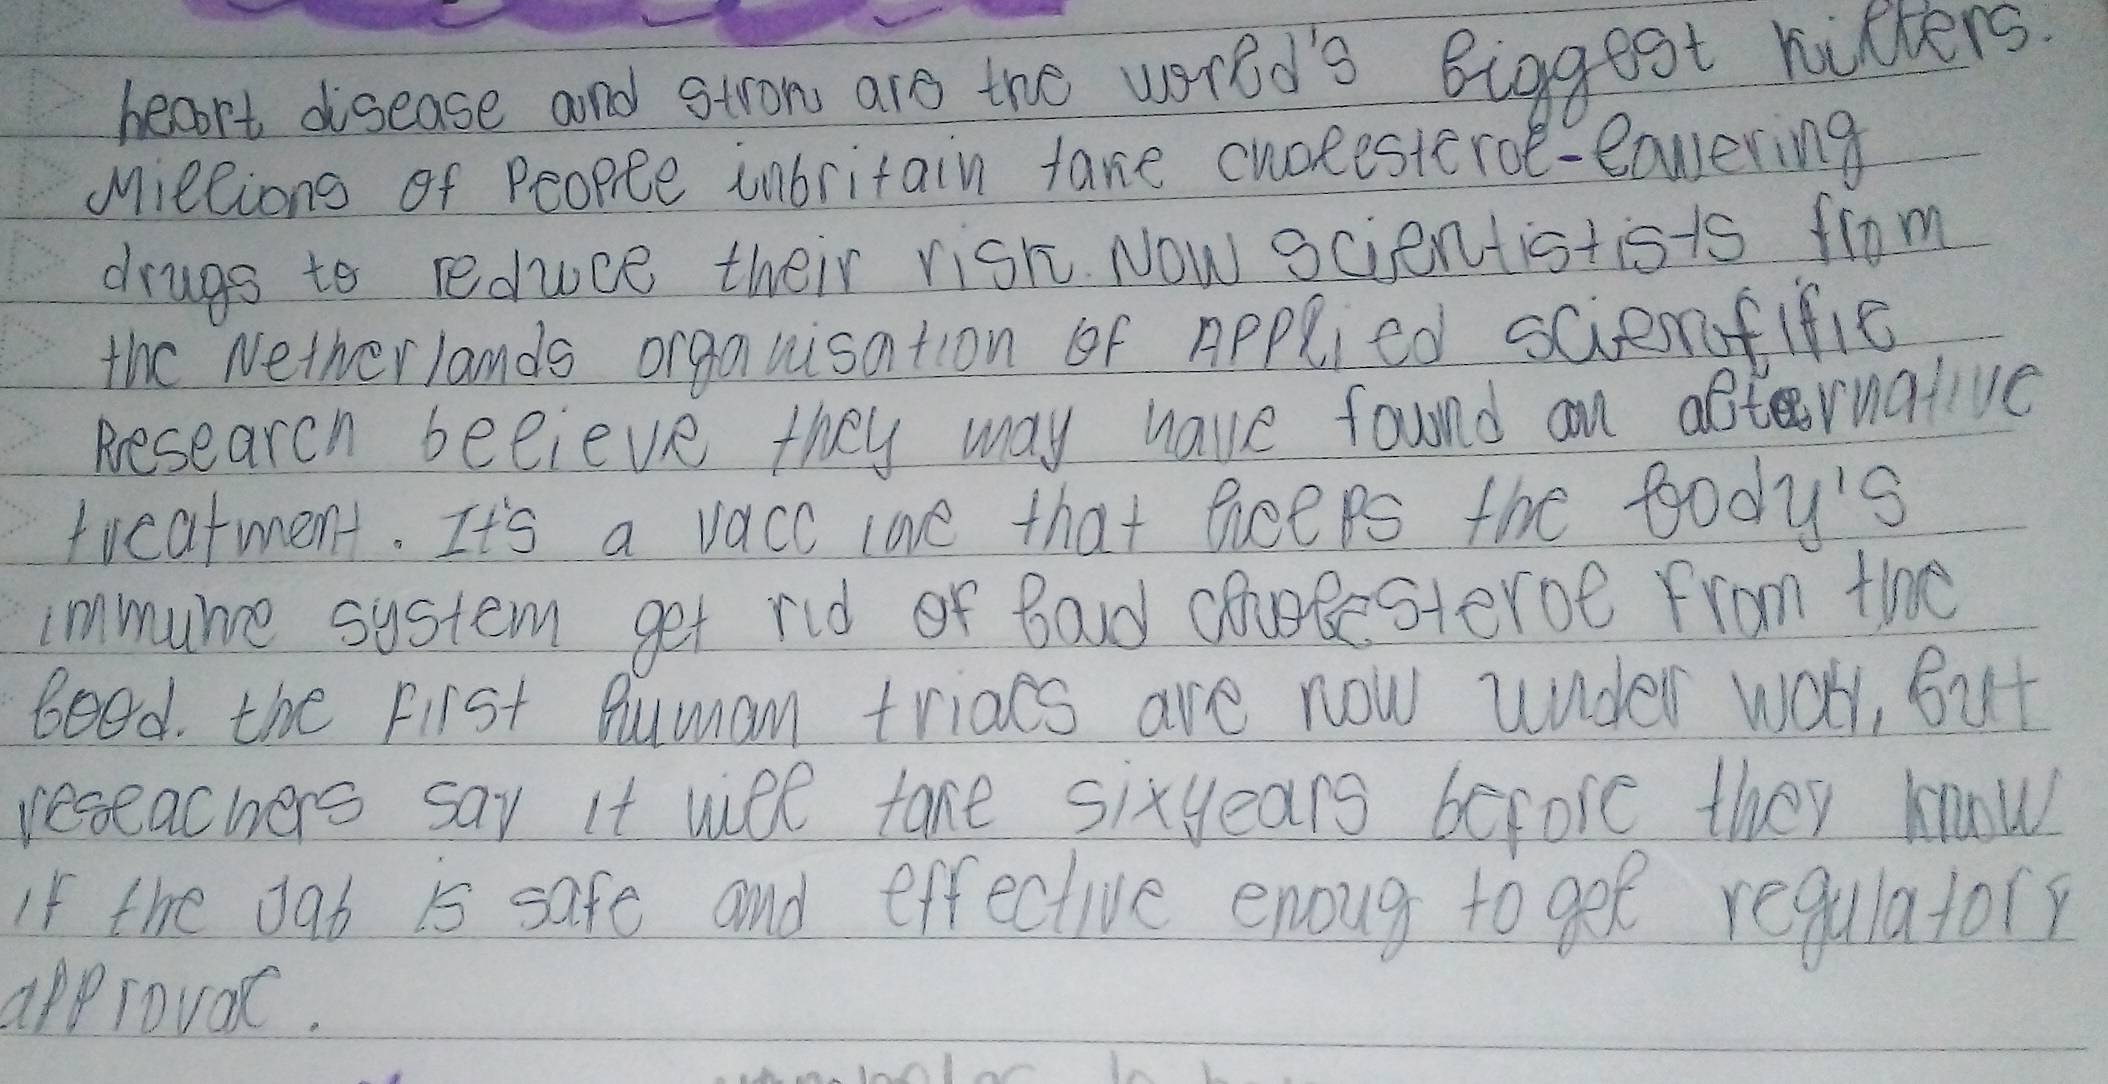 heart disease and stron are the world's biggest killers.
Millions of People inbritain take cholesterol-lawering
drugs to reduce their risk. Now scientistists from
the Netherlands organisation of Applied scientific
Research believe they may have found an alternative
treatment. It's a vaccine that heeps the body's
immune system get rid of bad cholesterol from the
bood. the First human trials are now under way, but
reseachers say it will take sixyears before they know
if the Jab is safe and effective enoug to get regulatory
approval.